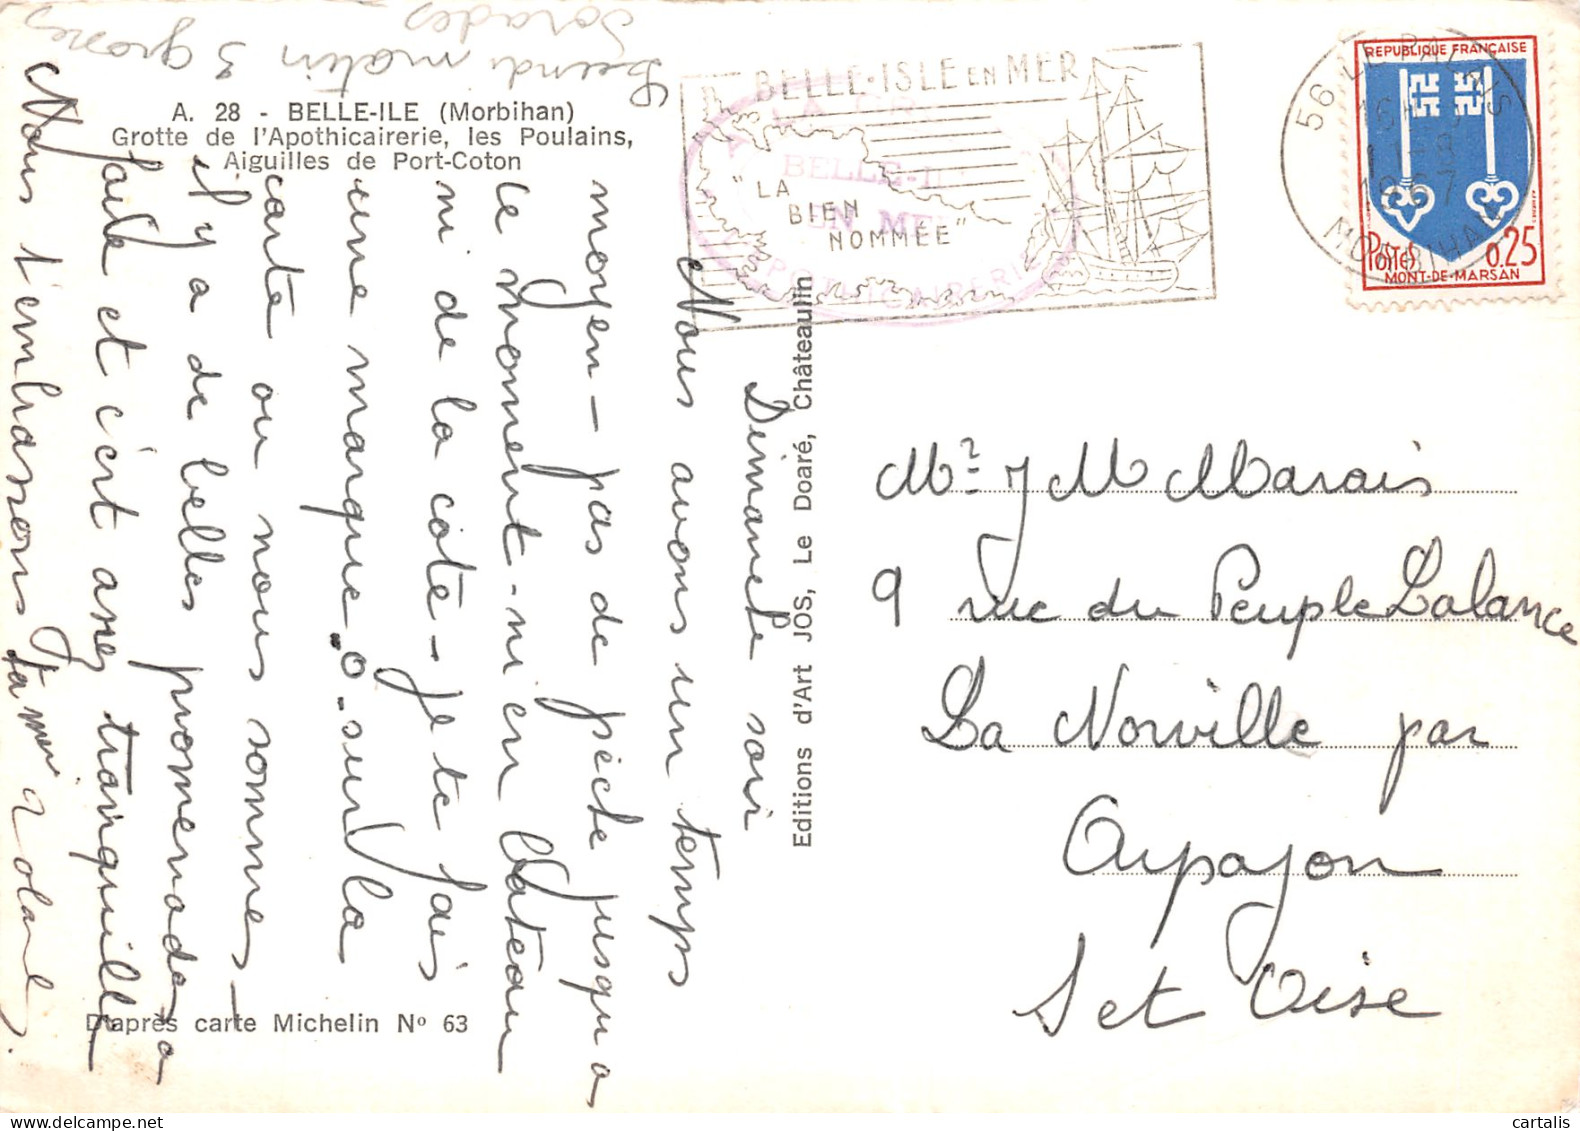 Lundi matin 3 grosses
Dorades
A. 28 - BELLE-ILE (Morbihan)
Grotte de l'Apothicairerie, les Poulains,
Aiguilles de Port-Coton
Dimanche soir
Nous avons un temps
moyen - pas de pêche jusqu'a
ce moment - ni en bateau
ni de la côte - je te fais
une marque .o. sur la
carte ou nous sommes -
il y a de belles promenades a
faire et c'est assez tranquille
Nous t'embrassons
D'après carte Michelin Nº 63
Editions d'Art JOS, Le Doaré, Châteaulin
BELLE-ISLE EN MER
"LA
BIEN
NOMMÉE"
BELLE-I
EN MER
APOTHICAIRERIE
56 LE PALAIS
16H
11-9
1967
MORBIHAN
REPUBLIQUE FRANÇAISE
POSTES 0,25
MONT-DE-MARSAN
Mr J M Marais
9 rue du Peuple Lalance
La Norville par
Arpajon
S et Oise
cartalis